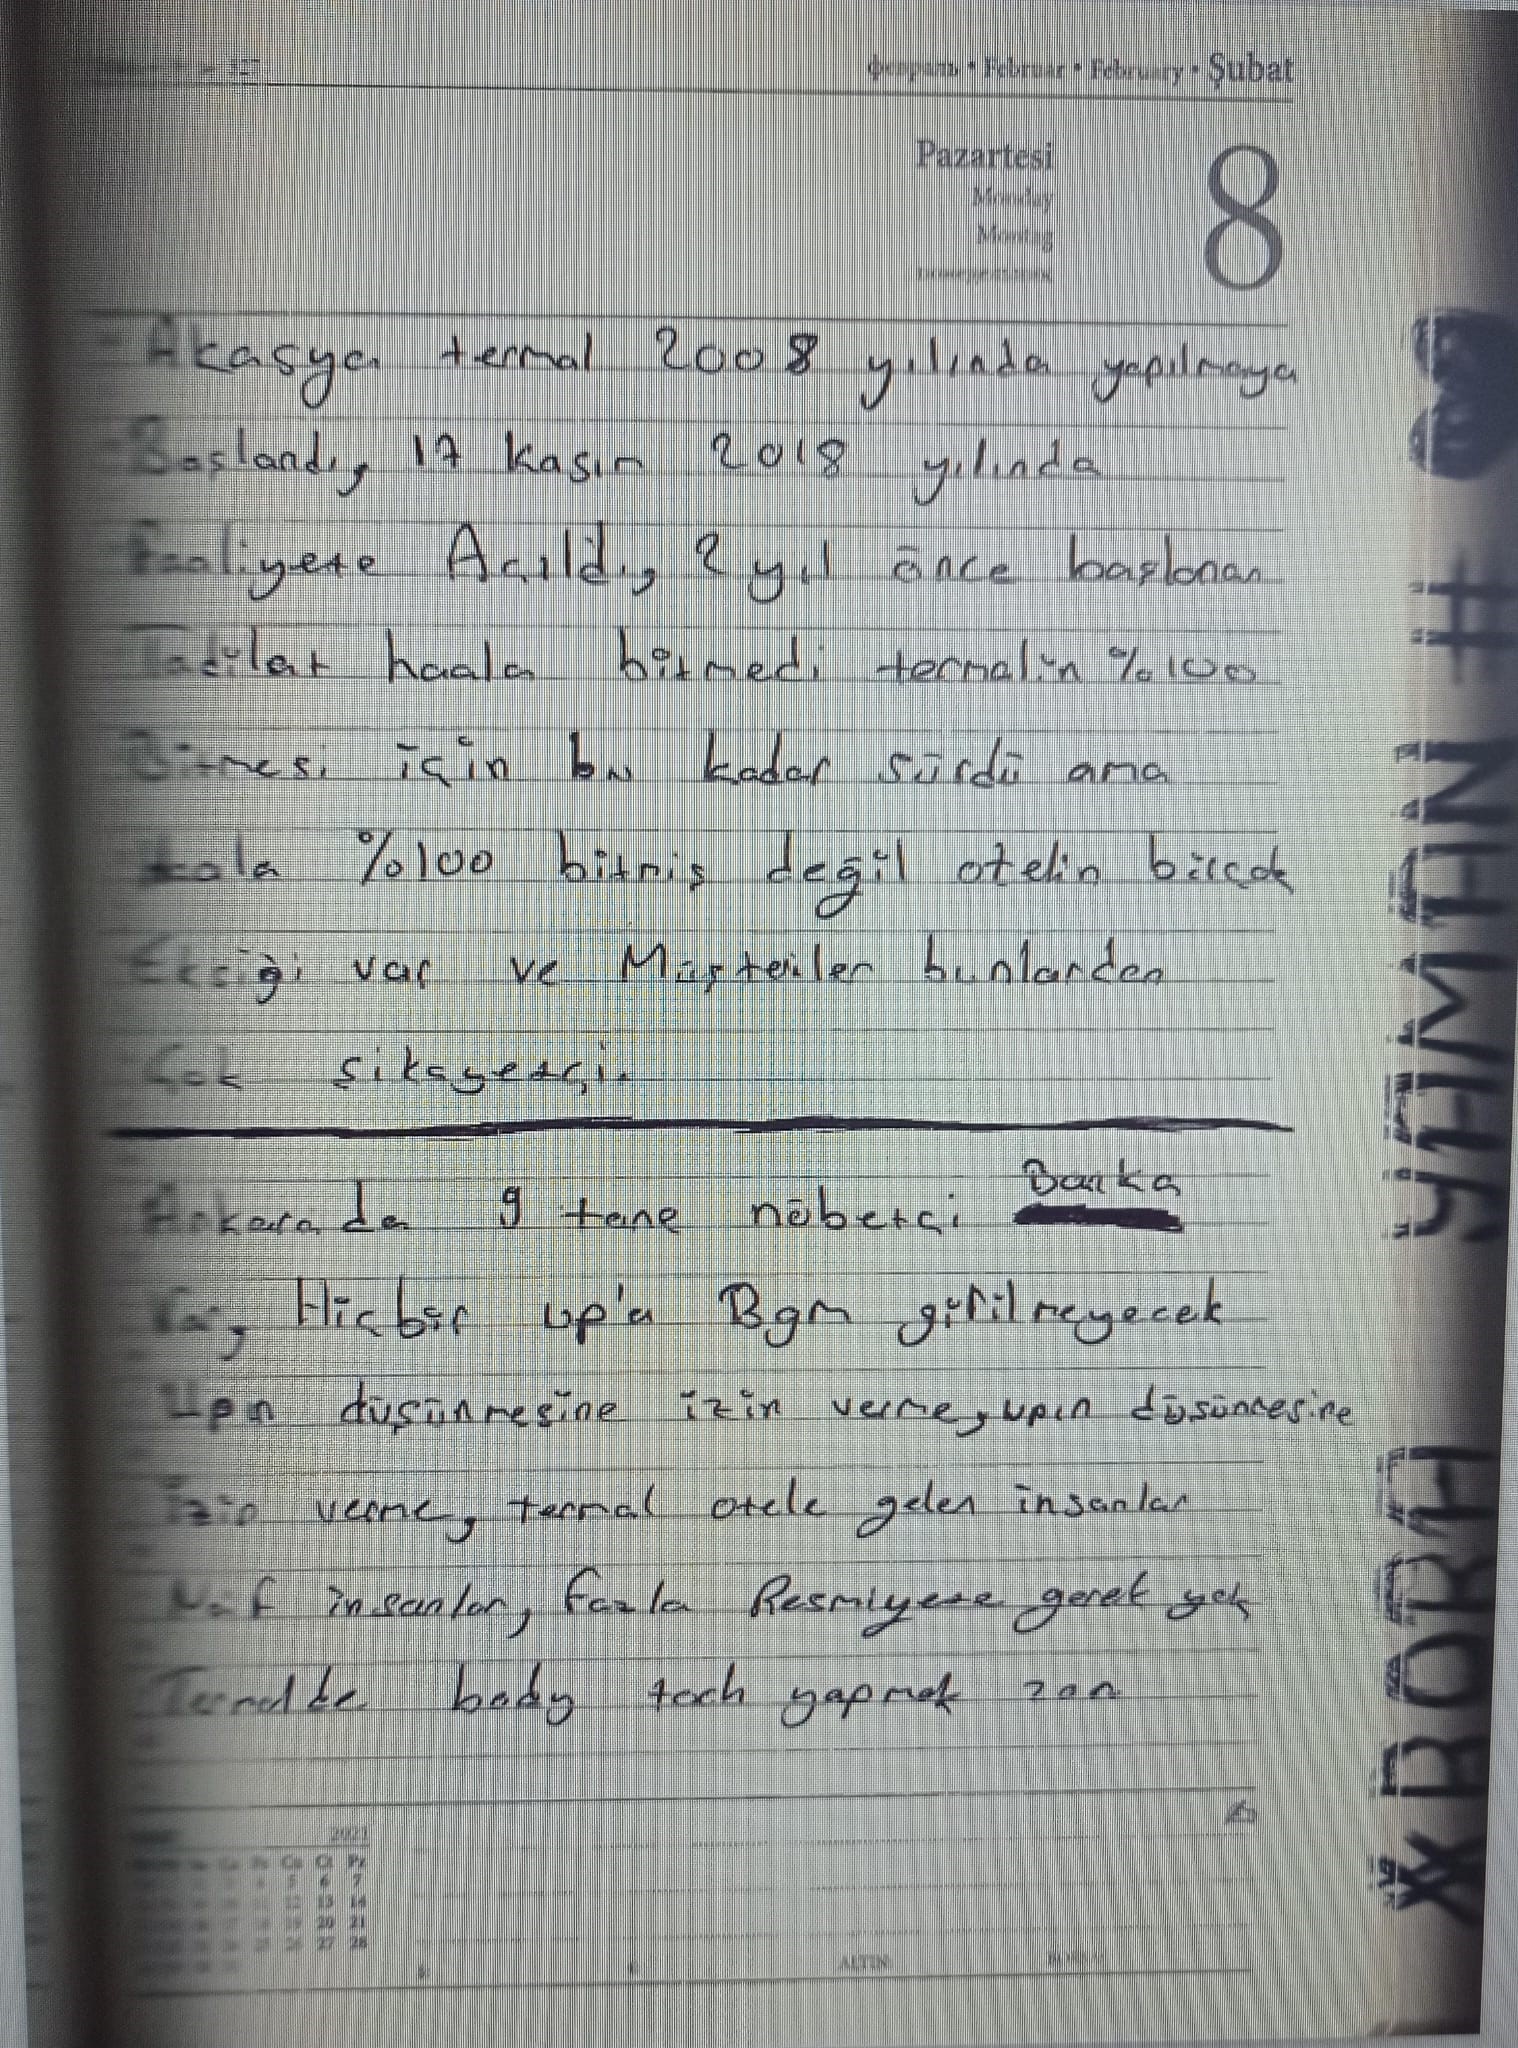 февраль • Februar • February • Şubat
Pazartesi
Monday
Montag
8
Akasya termal 2008 yılında yapılmaya
Başlandı, 17 Kasım 2018 yılında
Faaliyete Açıldı, 2 yıl önce başlanan
Tadilat haala bitmedi termalin %100
Bitmesi için bu kadar sürdü ama
hala %100 bitmiş değil otelin birçok
Eksiği var ve Müşteriler bunlardan
Çok şikayetçi.
Ankara da 9 tane nöbetçi Banka
Var, Hiçbir up'a Bgm girilmeyecek
Upın düşünmesine izin verme, upın düşüncesine
İzin verme, termal otele gelen insanlar
Naif insanlar, fazla Resmiyete gerek yok
Termalde body tach yapmak zor
2021
Cu Ct Pz
5 6 7
12 13 14
19 20 21
26 27 28
ALTIN